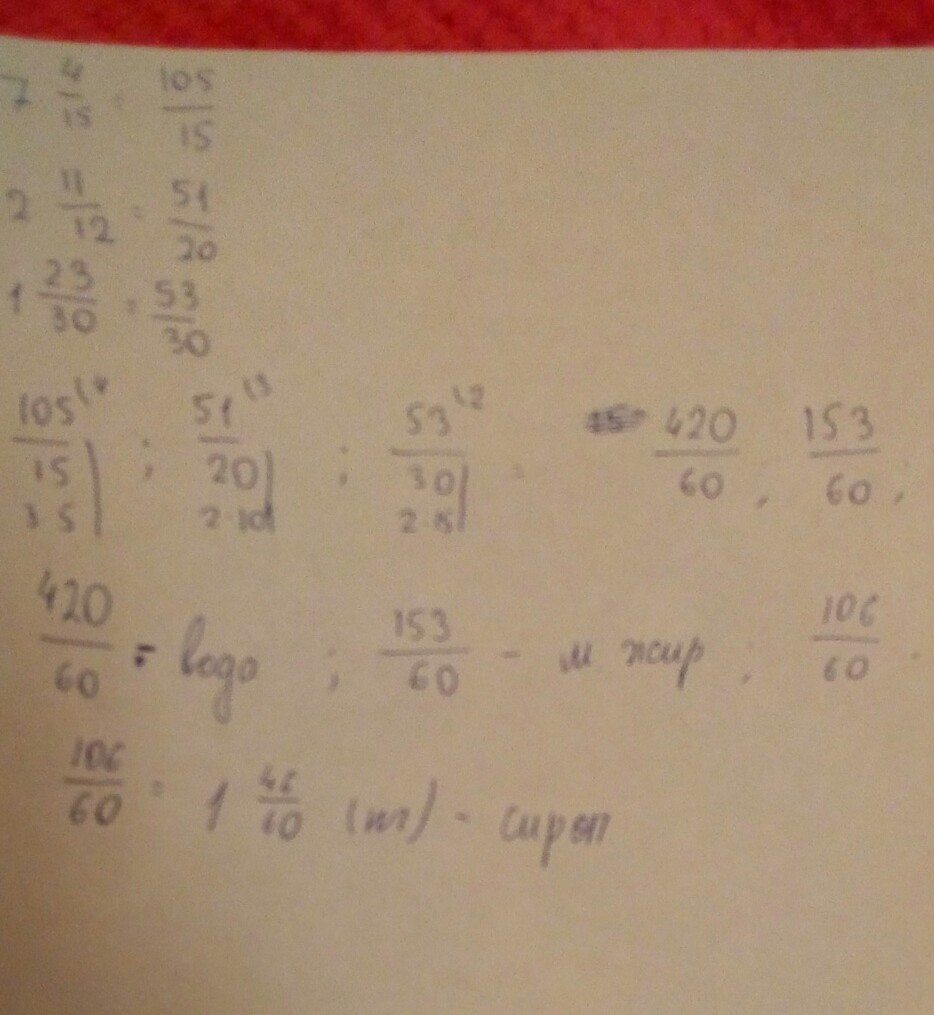 7 4/15 = 105/15
2 11/12 = 51/20
1 23/30 = 53/30
105\4/15 ; 51\3/20 ; 53\2/30 = 420/60 , 153/60 ,
3 5 2·10 2·15
420/60 = вода ; 153/60 - м жир ; 106/60 -
106/60 = 1 46/60 (тг) - сироп